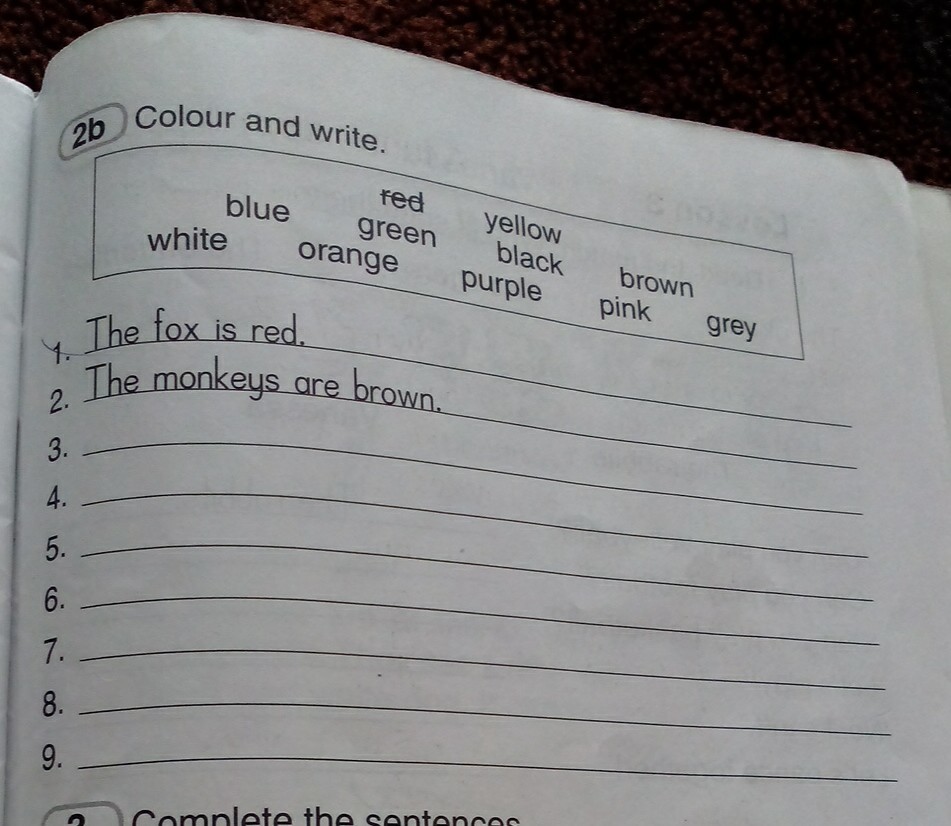 2b Colour and write.
red
blue green yellow
white orange black brown
purple pink grey
1. The fox is red.
2. The monkeys are brown.
3.
4.
5.
6.
7.
8.
9.
Complete the sentences